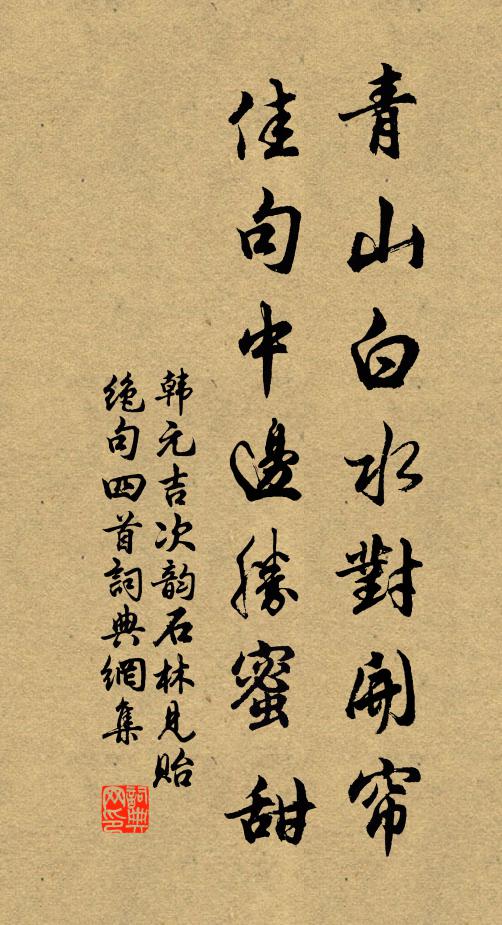 青山白水對開帘
佳句中邊勝蜜甜
韩元吉次韵石林見貽
絶句四首詞典網集
詞典网印